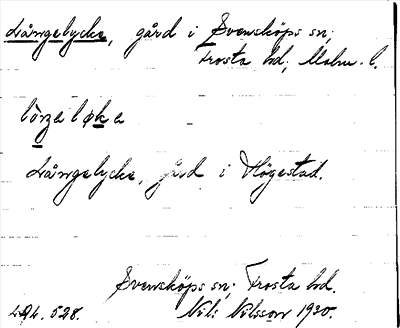 Långelycke, gård i Svensköps sn;
Frosta hd; Malm. l.
Långelycke, gård i Högestad.
Svensköps sn; Frosta hd.
Nils Nilsson 1930.